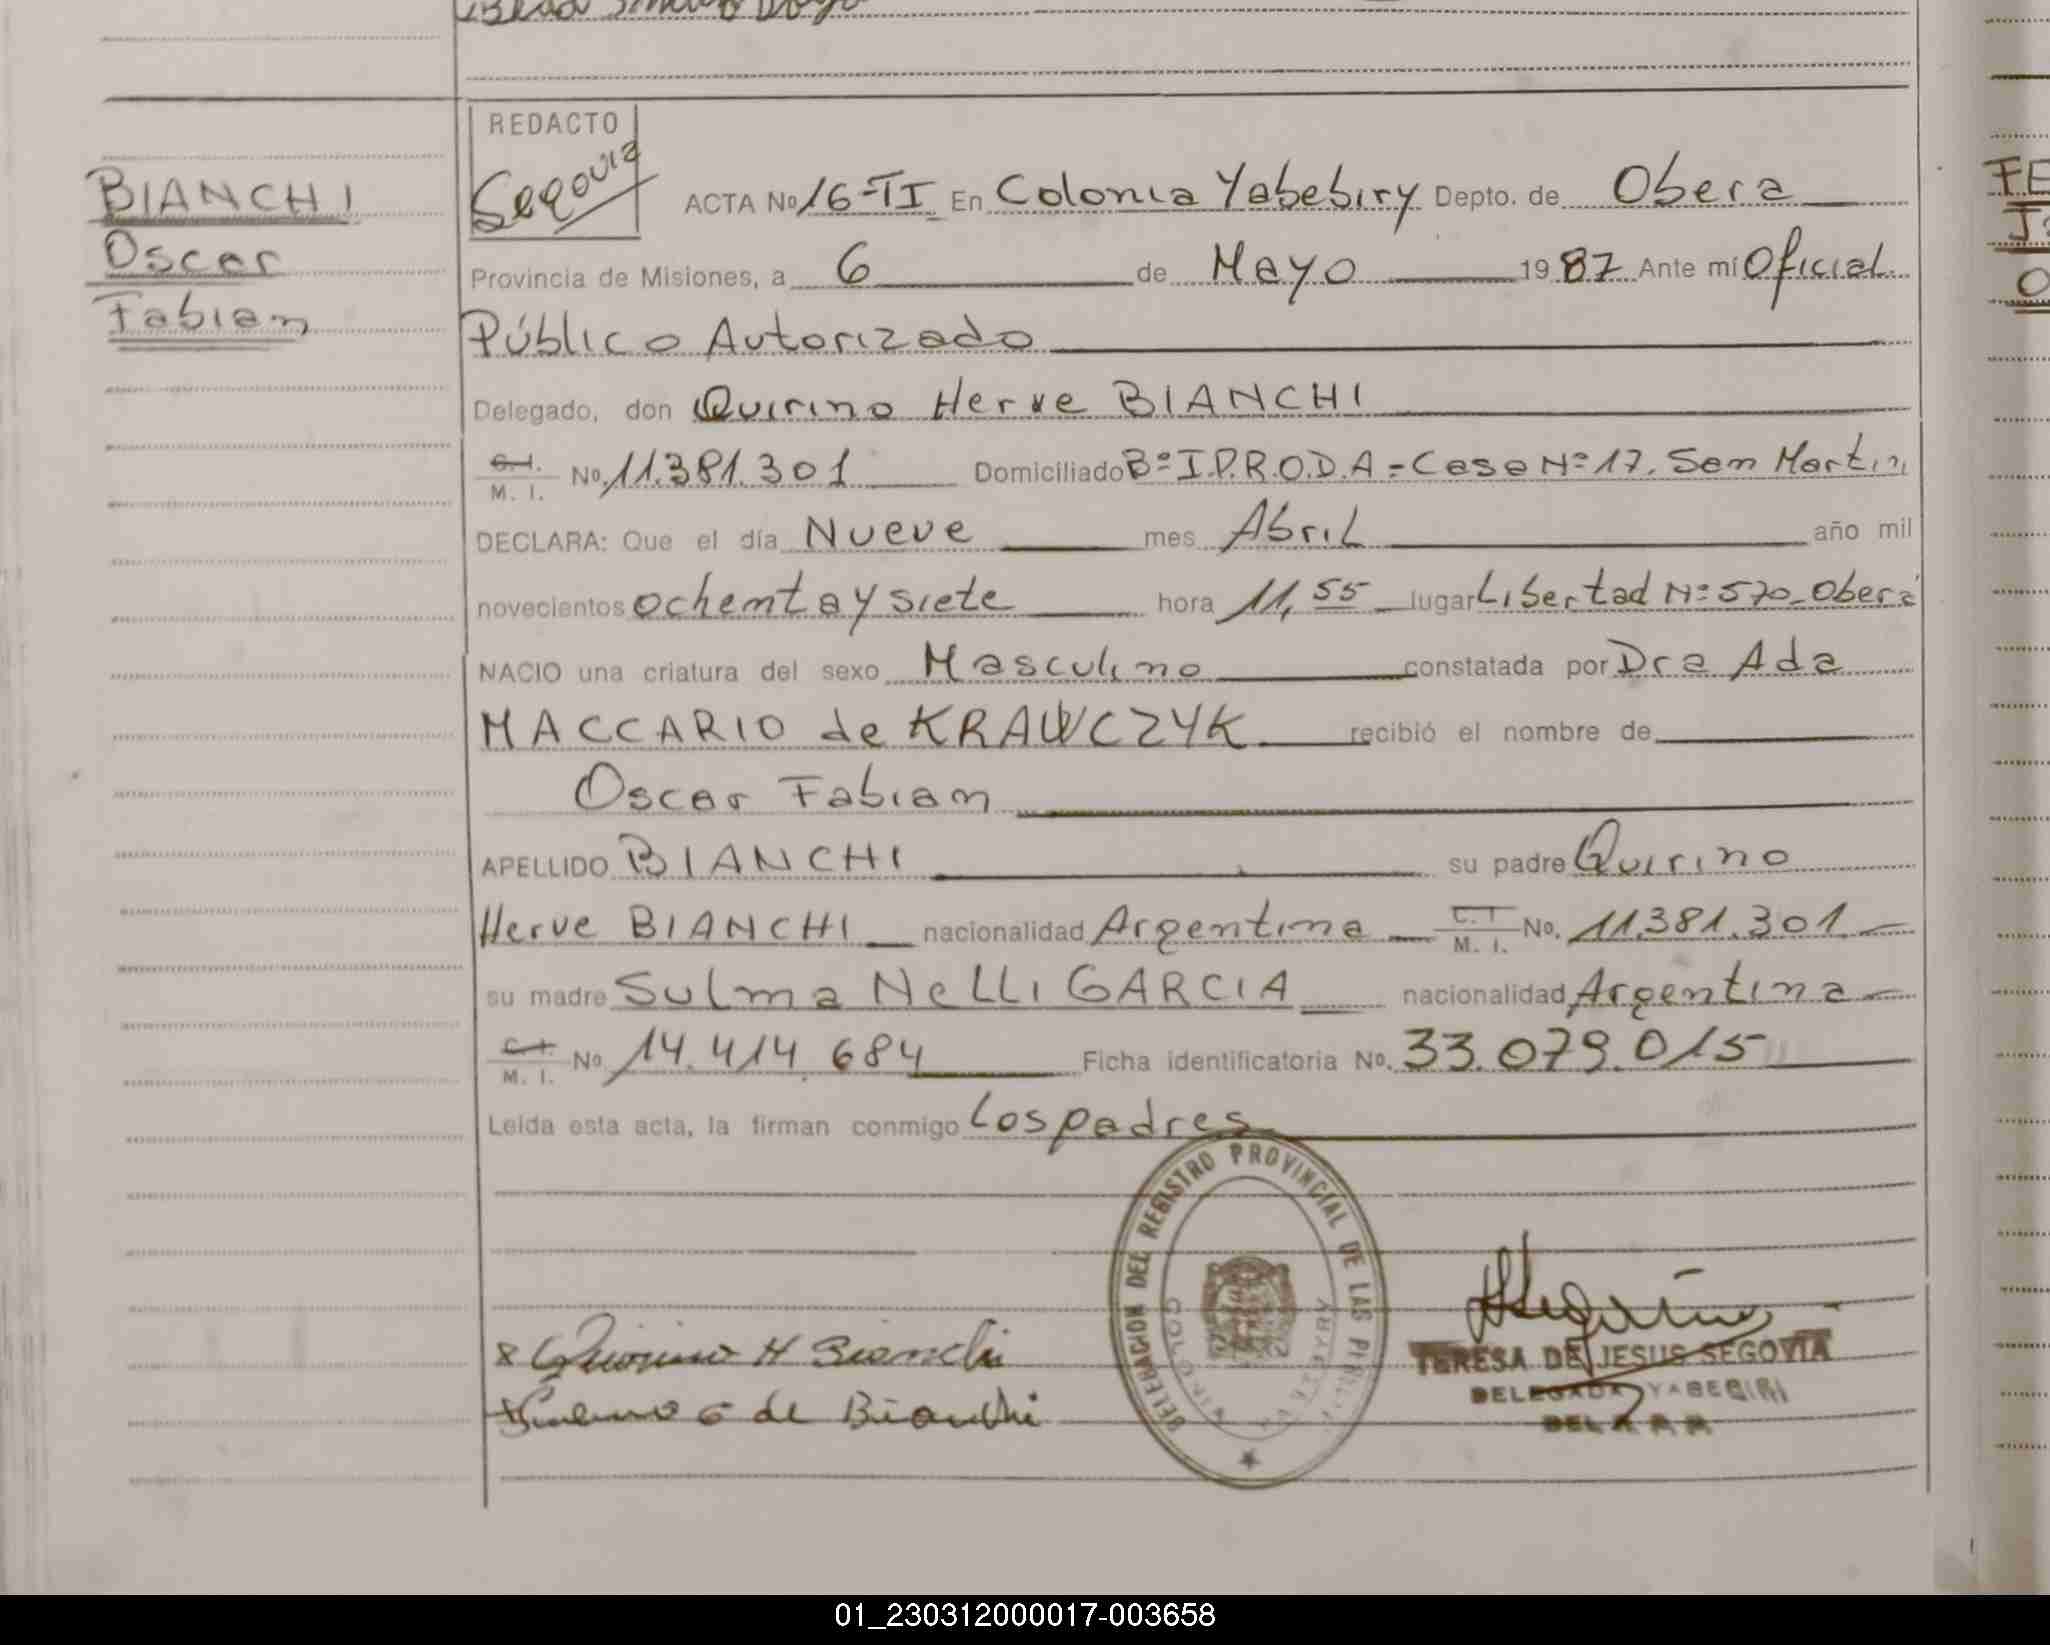 BIANCHI
Oscar
Fabian
REDACTO
Segovia
ACTA No 16-TI En Colonia Yabebiry Depto. de Obera
Provincia de Misiones, a 6 de Mayo 1987 Ante mí Oficial
Público Autorizado
Delegado, don Quirino Herve BIANCHI
C.I. M. I. No. 11.381.301 Domiciliado Bº I.P.R.O.D.A - Casa Nº 17. San Martin
DECLARA: Que el día Nueve mes Abril año mil
novecientos ochenta y siete hora 11,55 lugar Libertad Nº 570-Oberá
NACIO una criatura del sexo Masculino constatada por Dra Ada
MACCARIO de KRAWCZYK recibió el nombre de
Oscar Fabian
APELLIDO BIANCHI su padre Quirino
Herve BIANCHI nacionalidad Argentina C.I M. I. No. 11.381.301
su madre Sulma Nelli GARCIA nacionalidad Argentina
C.I. M. I. No. 14.414.684 Ficha identificatoria No. 33.079.015
Leída esta acta, la firman conmigo los padres
DEL REGISTRO PROVINCIAL DE LAS
x Quirino H Bianchi
G de Bianchi
TERESA DE JESUS SEGOVIA
DELEGADA YABEBIRI
FE
O
01_230312000017-003658